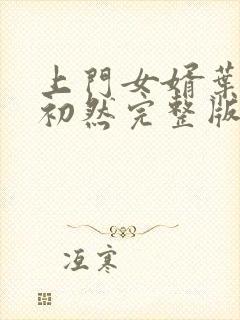 上門女婿葉
初然完整版
冱寒